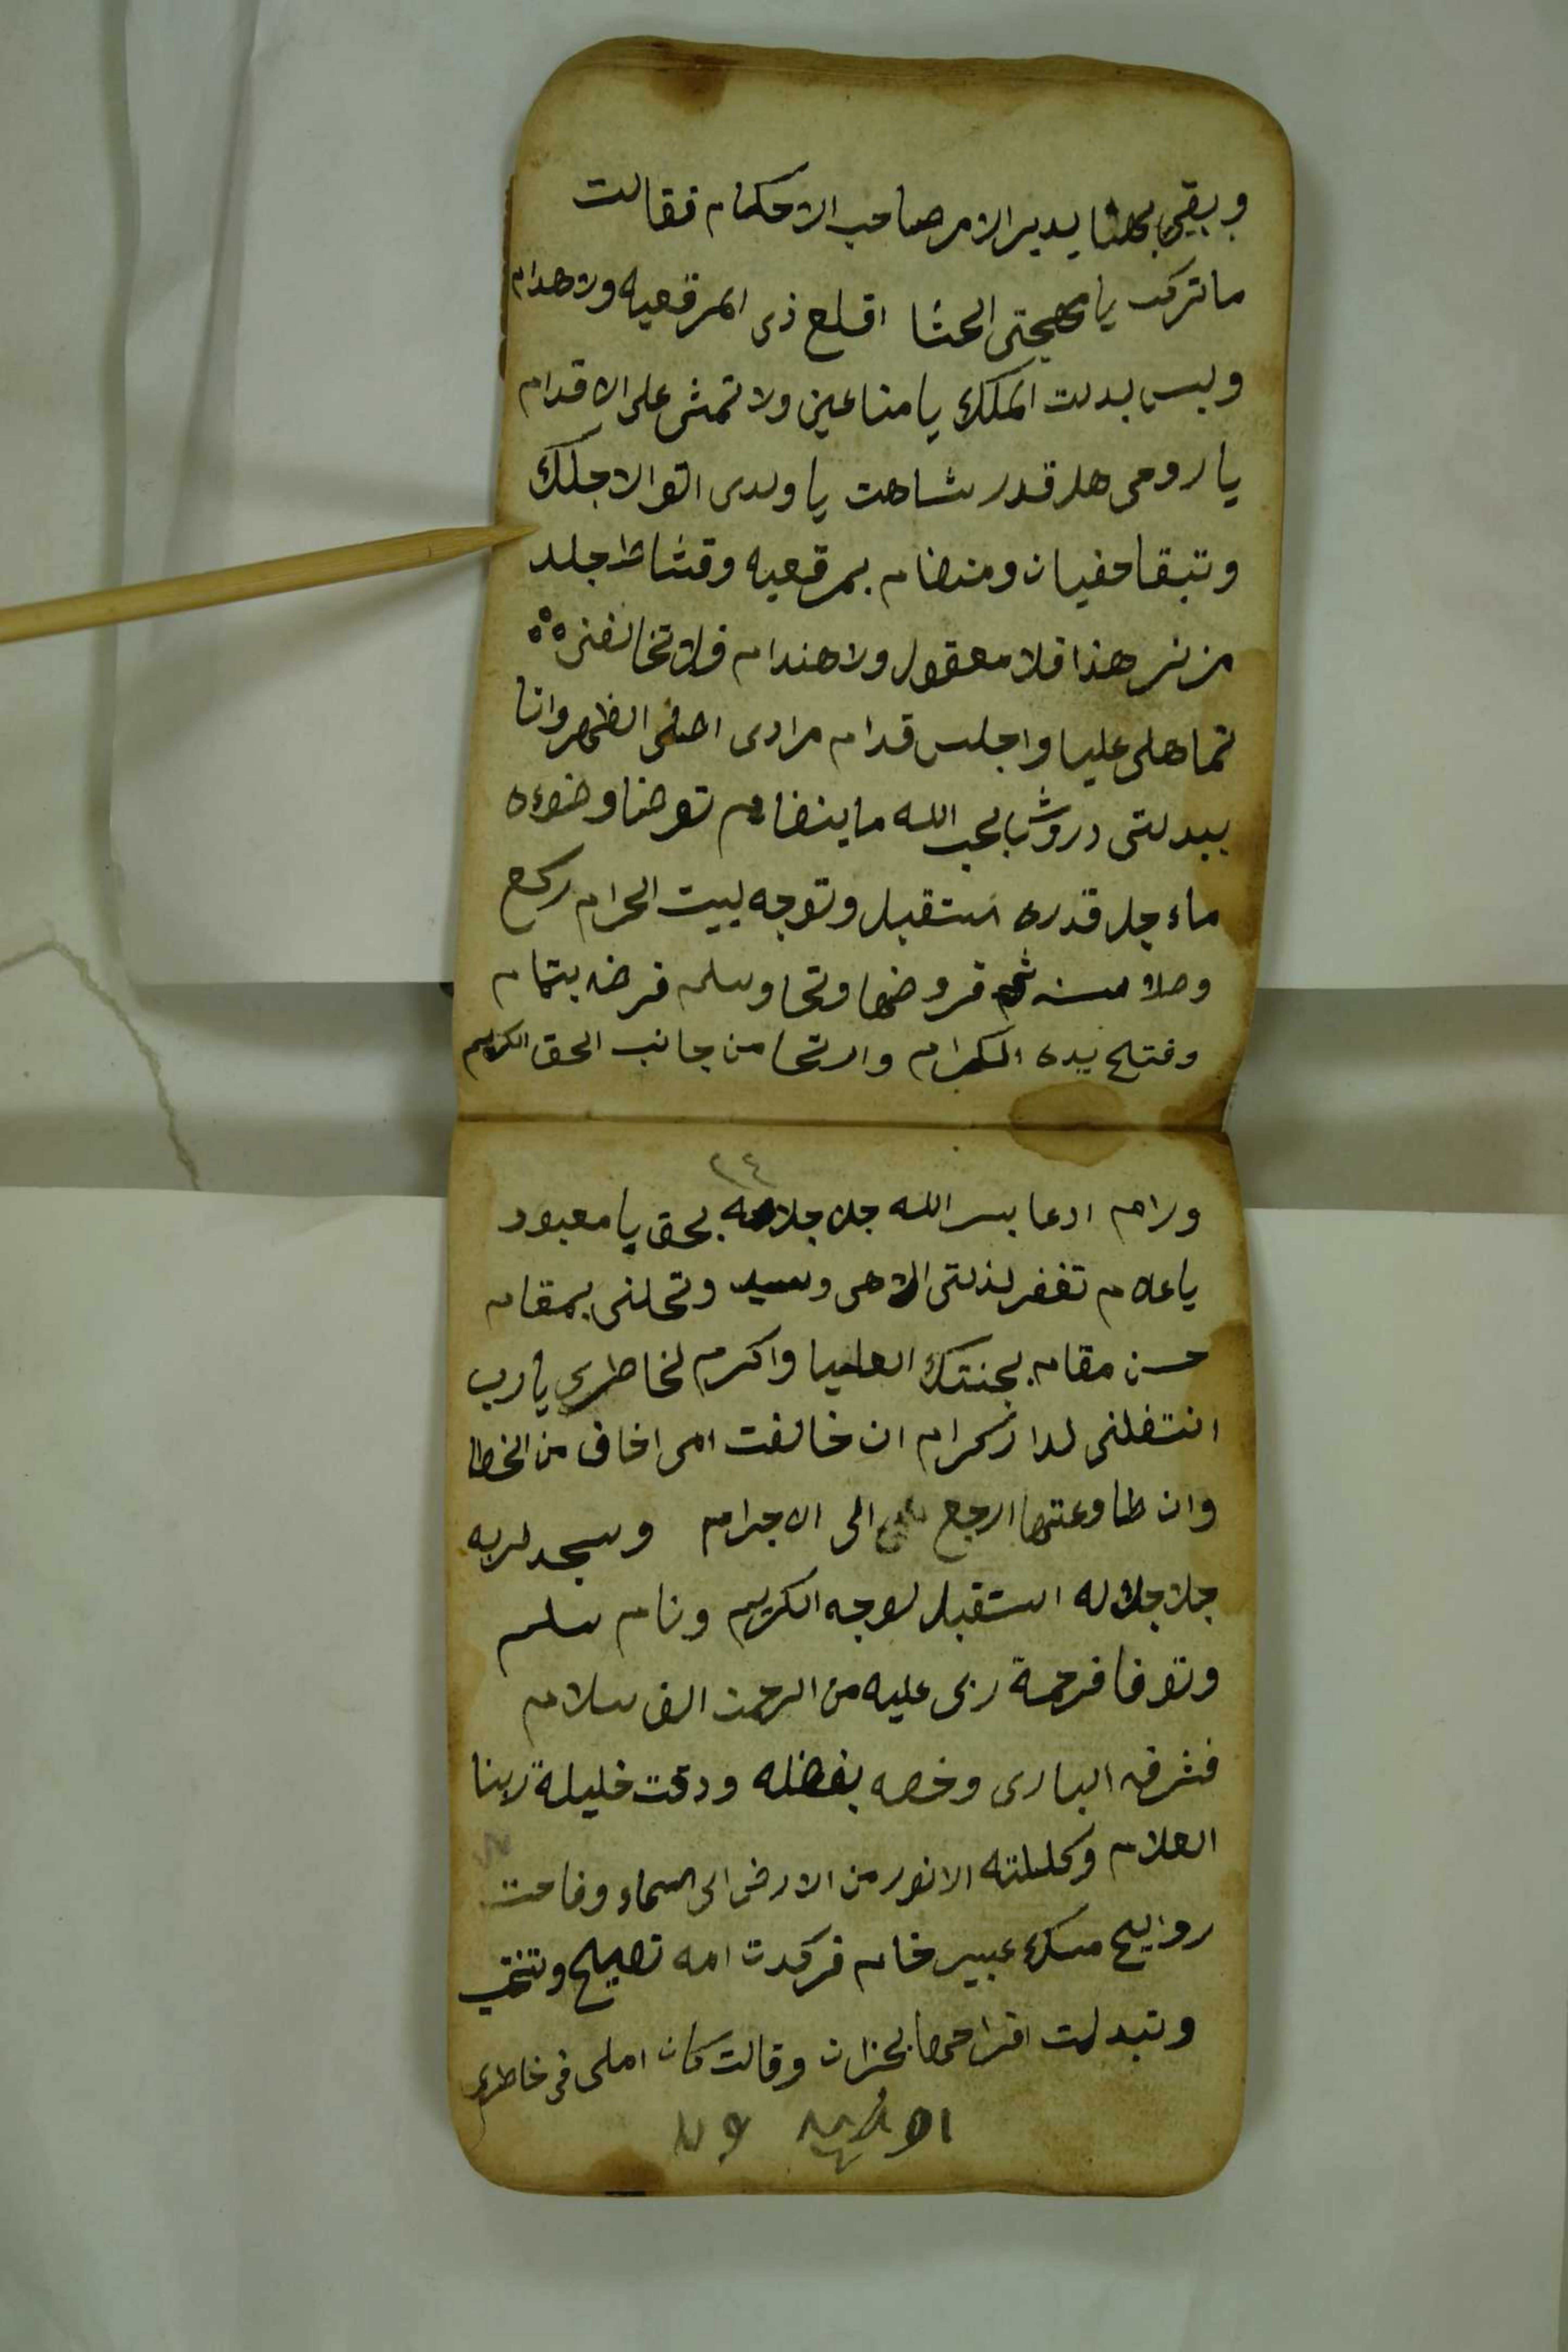 وبقى بهنا يدير الامر صاحب الاحكام فقالت
ما تركب يا مهجتى الحشا اقلع ذى المرقعيه ولا هدام
ولبس بدلت الملك يا مناعين ولا تمشى على الاقدام
يا رومى هلى قدر شاهت يا ولدى الاجلك
وتبقا حفيان ومنضام بمرقعيه وقشاط جلد
هذا فلا معقول ولا هندام فلا تخالفنى
تماهلى عليا واجلس قدام مرادى اصفى الظهر وانا
ببدلتى دروش بالحب الله ما ينضام توضا وضوءه
ماء جل قدره استقبل وتوجه لبيت الحرام ركع
وصلا سنه ثم فروضها وتحا وسلم فرضه بتمام
وفتح يده الكرام وارتحا من جانب الحق الكريم
٢٤
ورام ادعا بسر الله جلا جلاله بحق يا معبود
يا علام تغفر لذلتى الاهى وسيد وتحلنى بمقام
حسن مقام بجنتك العليا واكرم لخاطرى يا رب
انتقلنى لدار كرام ان خالفت امى اخاف من الخطا
وان طاوعتها ارجع الى الاجرام وسجد لربه
جلا جلاله استقبل لوجه الكريم ونام سلم
وتوفا فرحمة ربى عليه من الرحمن الف سلام
فشرفه البارى وخصه بفضله ودقت خليلة ربنا
العلام وكللته الانور من الارض الى السماء وفاحت
روايح مسك عبير خام فركدت امه تصيح وتنتحب
وتبدلت افراحها بحزان وقالت كان املى فى خاطرى